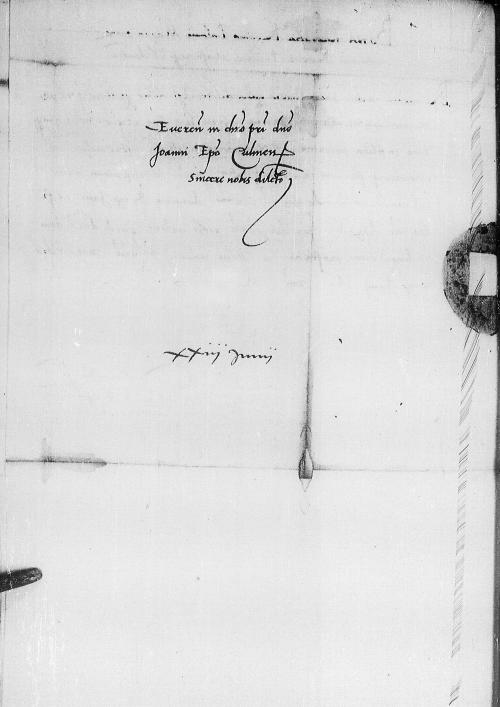 Reveren in chro pri dno
Joanni Epo Culmen
Sincere nobis dilcto
xxiij Junij